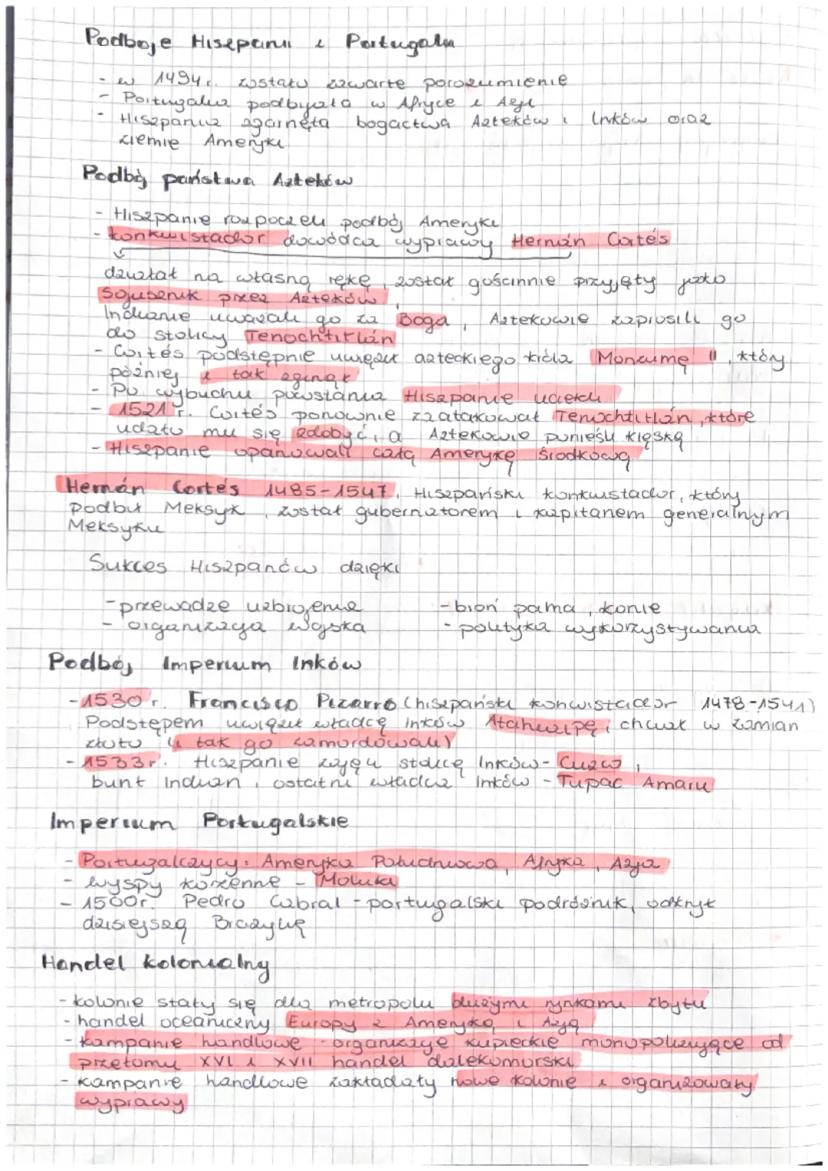 Podboje Hiszpanii i Portugalii
- w 1494r. zostało zawarte porozumienie
- Portugalia podbijała w Afryce i Azji
- Hiszpania zgarnęła bogactwa Azteków i Inków oraz
ziemie Ameryki
Podbój państwa Azteków
- Hiszpanie rozpoczeli podbój Ameryki
- konkwistador dowódca wyprawy Hernán Cortés
działał na własną rękę, został gościnnie przyjęty jako
Sojusznik przez Azteków,
Indianie uważali go za Boga, Aztekowie zaprosili go
do stolicy Tenochtitlán
- Cortés podstępnie uwięził azteckiego króla Monzumę II, który
później i tak zginął
- Po wybuchu powstania Hiszpanie uciekli
- 1521r. Cortés ponownie zaatakował Tenochtitlán, które
udało mu się zdobyć, a Aztekowie ponieśli klęskę
- Hiszpanie opanowali całą Amerykę Środkową
Hernán Cortés 1485-1547, Hiszpański konkwistador, który
podbił Meksyk, został gubernatorem i kapitanem generalnym
Meksyku
Sukces Hiszpanów dzięki
- przewadze uzbrojenia - broń palna, konie
- organizacja wojska - polityka wykorzystywania
Podbój Imperium Inków
- 1530r. Francisco Pizarro (hiszpański konwistador 1478-1541)
Podstępem uwięził władcę Inków Atahualpę, chciał w zamian
złoto (i tak go zamordowali)
- 1533r. Hiszpanie zajęli stolicę Inków - Cuzco,
bunt Indian, ostatni władca Inków - Tupac Amaru
Imperium Portugalskie
- Portugalczycy: Ameryka Południowa, Afryka, Azja
- wyspy korzenne - Moluki
- 1500r. Pedro Cabral - portugalski podróżnik, odkrył
dzisiejszą Brazylię
Handel kolonialny
- kolonie stały się dla metropolii dużymi rynkami zbytu
- handel oceaniczny Europy z Ameryką i Azją
- kampanie handlowe - organizacje kupieckie monopolizujące od
przełomu XVI i XVII handel dalekomorski
- kampanie handlowe zakładały nowe kolonie i organizowały
wyprawy